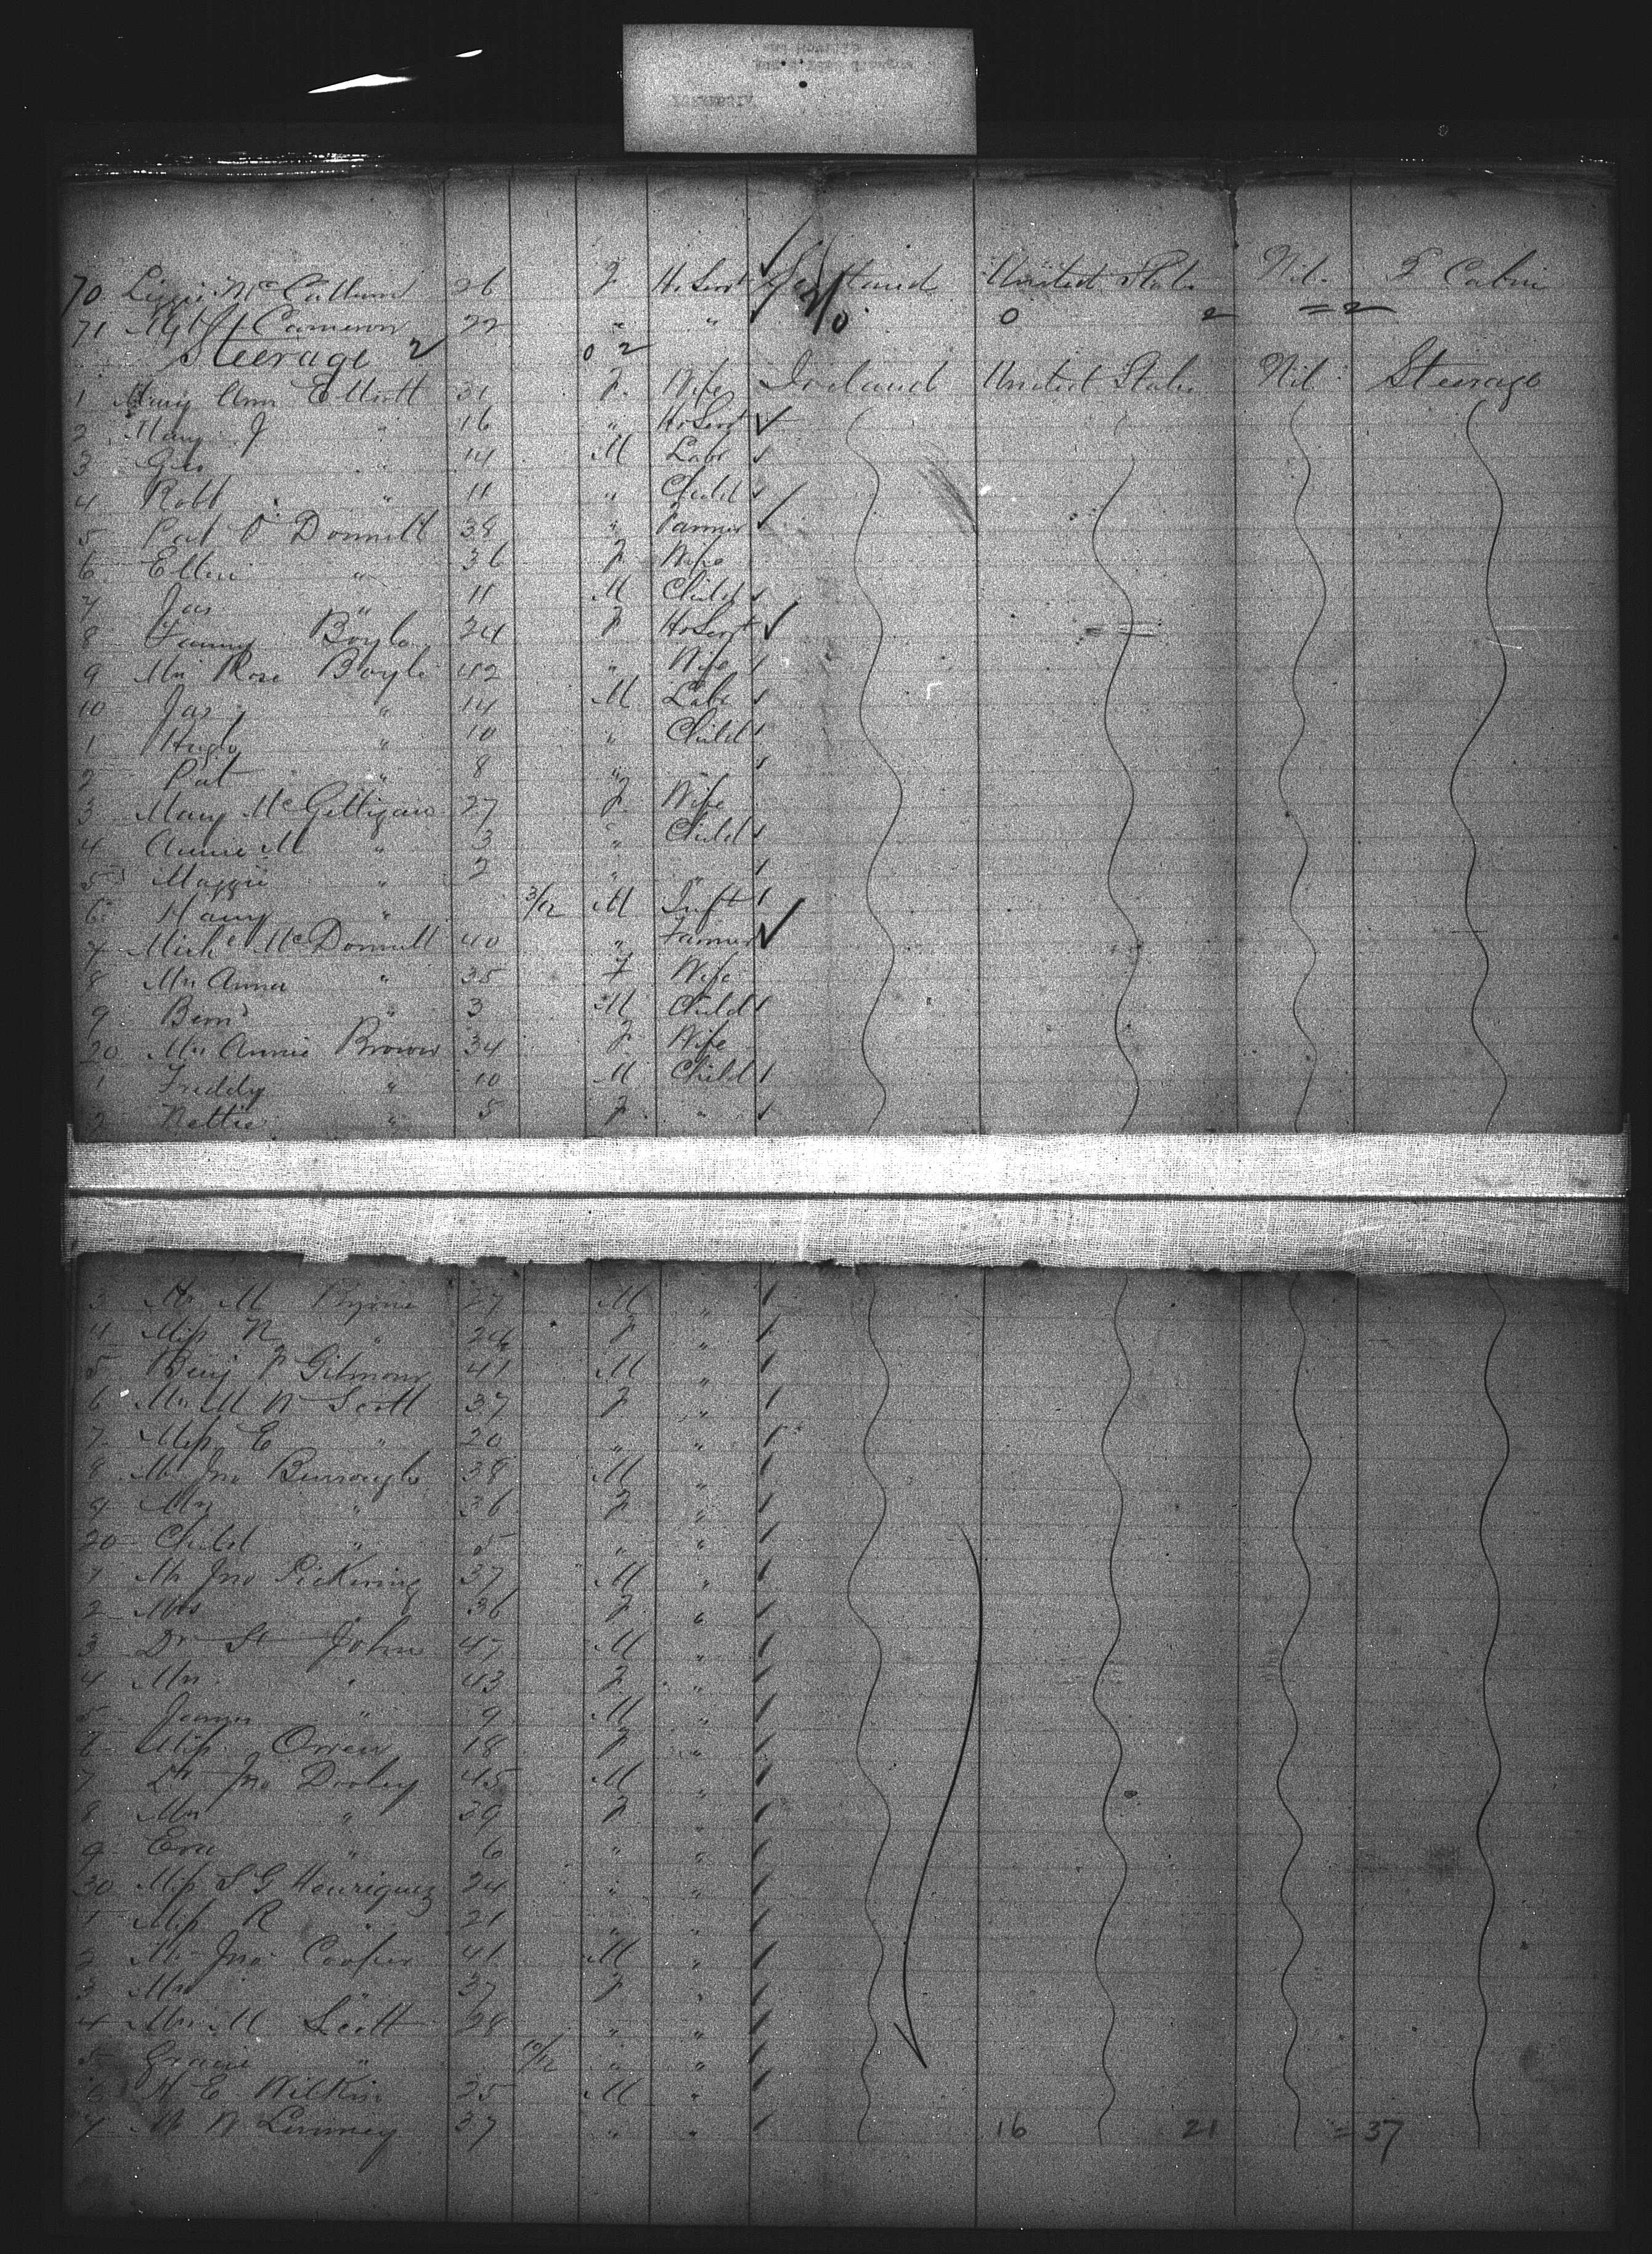 70 Lizzie McCallum 26 F. Ho Servt Scotland United States Nil. 2 Cabin
71 Mgt Cameron 22 " " 0 2 = 2
Steerage 2 0 2
1 Mary Ann Elliott 31 F. Wife Ireland United States Nil Steerage
2 Mary J " 16 " Ho Servt
3 Geo " 14 M Labr
4 Robt " 11 " Child
5 Pat O'Donnell 38 " Farmer
6 Ellen " 36 F Wife
7 Jas " 11 M Child
8 Fanny Boyle 24 F Ho Servt
9 Mrs Rose Boyle 42 " Wife
10 Jas " 14 M Labr
1 Hugh " 10 " Child
2 Pat " 8 "
3 Mary McGettigan 27 F. Wife
4 Annie M " 3 " Child
5 Maggie " 2 " "
6 Harry " 3/12 M Inft
7 Michl McDonnell 40 " Farmer
8 Mrs Anna " 35 F Wife
9 Bernd " 3 M Child
20 Mrs Annie Brown 34 F Wife
1 Freddy " 10 M Child
2 Nettie " 5 F. "
3 Mr M Byrne 27 M "
4 Miss N " 24 F "
5 Benj F Gilmour 41 M "
6 Mrs M N Scott 37 F "
7 Miss E " 20 " "
8 Mr Jno Burroughs 38 M "
9 Mrs " 36 F "
20 Child " 5 " "
1 Mr Jno Pickering 37 M "
2 Mrs " 36 F "
3 Dr St John 47 M "
4 Mrs " 43 F. "
5 " 9 M "
6 Miss 18 F "
7 Jno Dooley 45 M "
8 Mrs " 39 F "
9 Eva " 6 " "
30 Miss S G Henriquez 24 " "
1 Miss R " 21 " "
2 Mr Jno Cooper 41 M "
3 Mrs " 37 F "
4 Mrs M Scott 28 " "
5 Gracie " 10/12 " "
6 H E Wilkin 25 M "
7 Mr N 37 " " 16 21 = 37